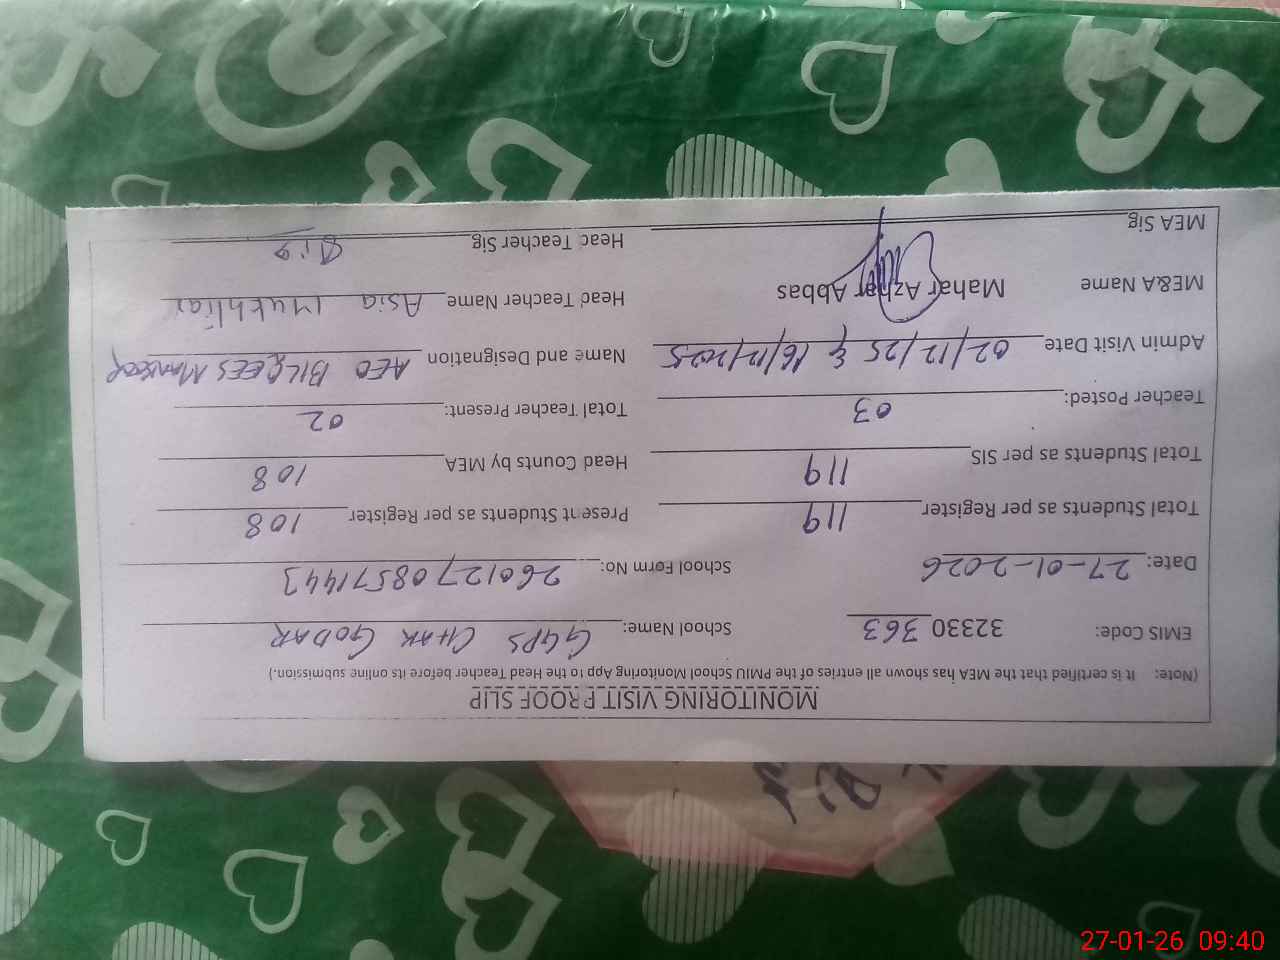 MONITORING VISIT PROOF SLIP
(Note: It is certified that the MEA has shown all entries of the PMIU School Monitoring App to the Head Teacher before its online submission.)
EMIS Code: 32330 363 School Name: GGPS CHAK GODAR
Date: 27-01-2026 School Form No: 260127085711443
Total Students as per Register 119 Present Students as per Register 108
Total Students as per SIS 119 Head Counts by MEA 108
Teacher Posted: 03 Total Teacher Present: 02
Admin Visit Date 02/12/25 & 16/12/2025 Name and Designation AEO BILQEES
ME&A Name Mahar Azhar Abbas Head Teacher Name Asia Mukhtiar
MEA Sig Head Teacher Sig
27-01-26 09:40